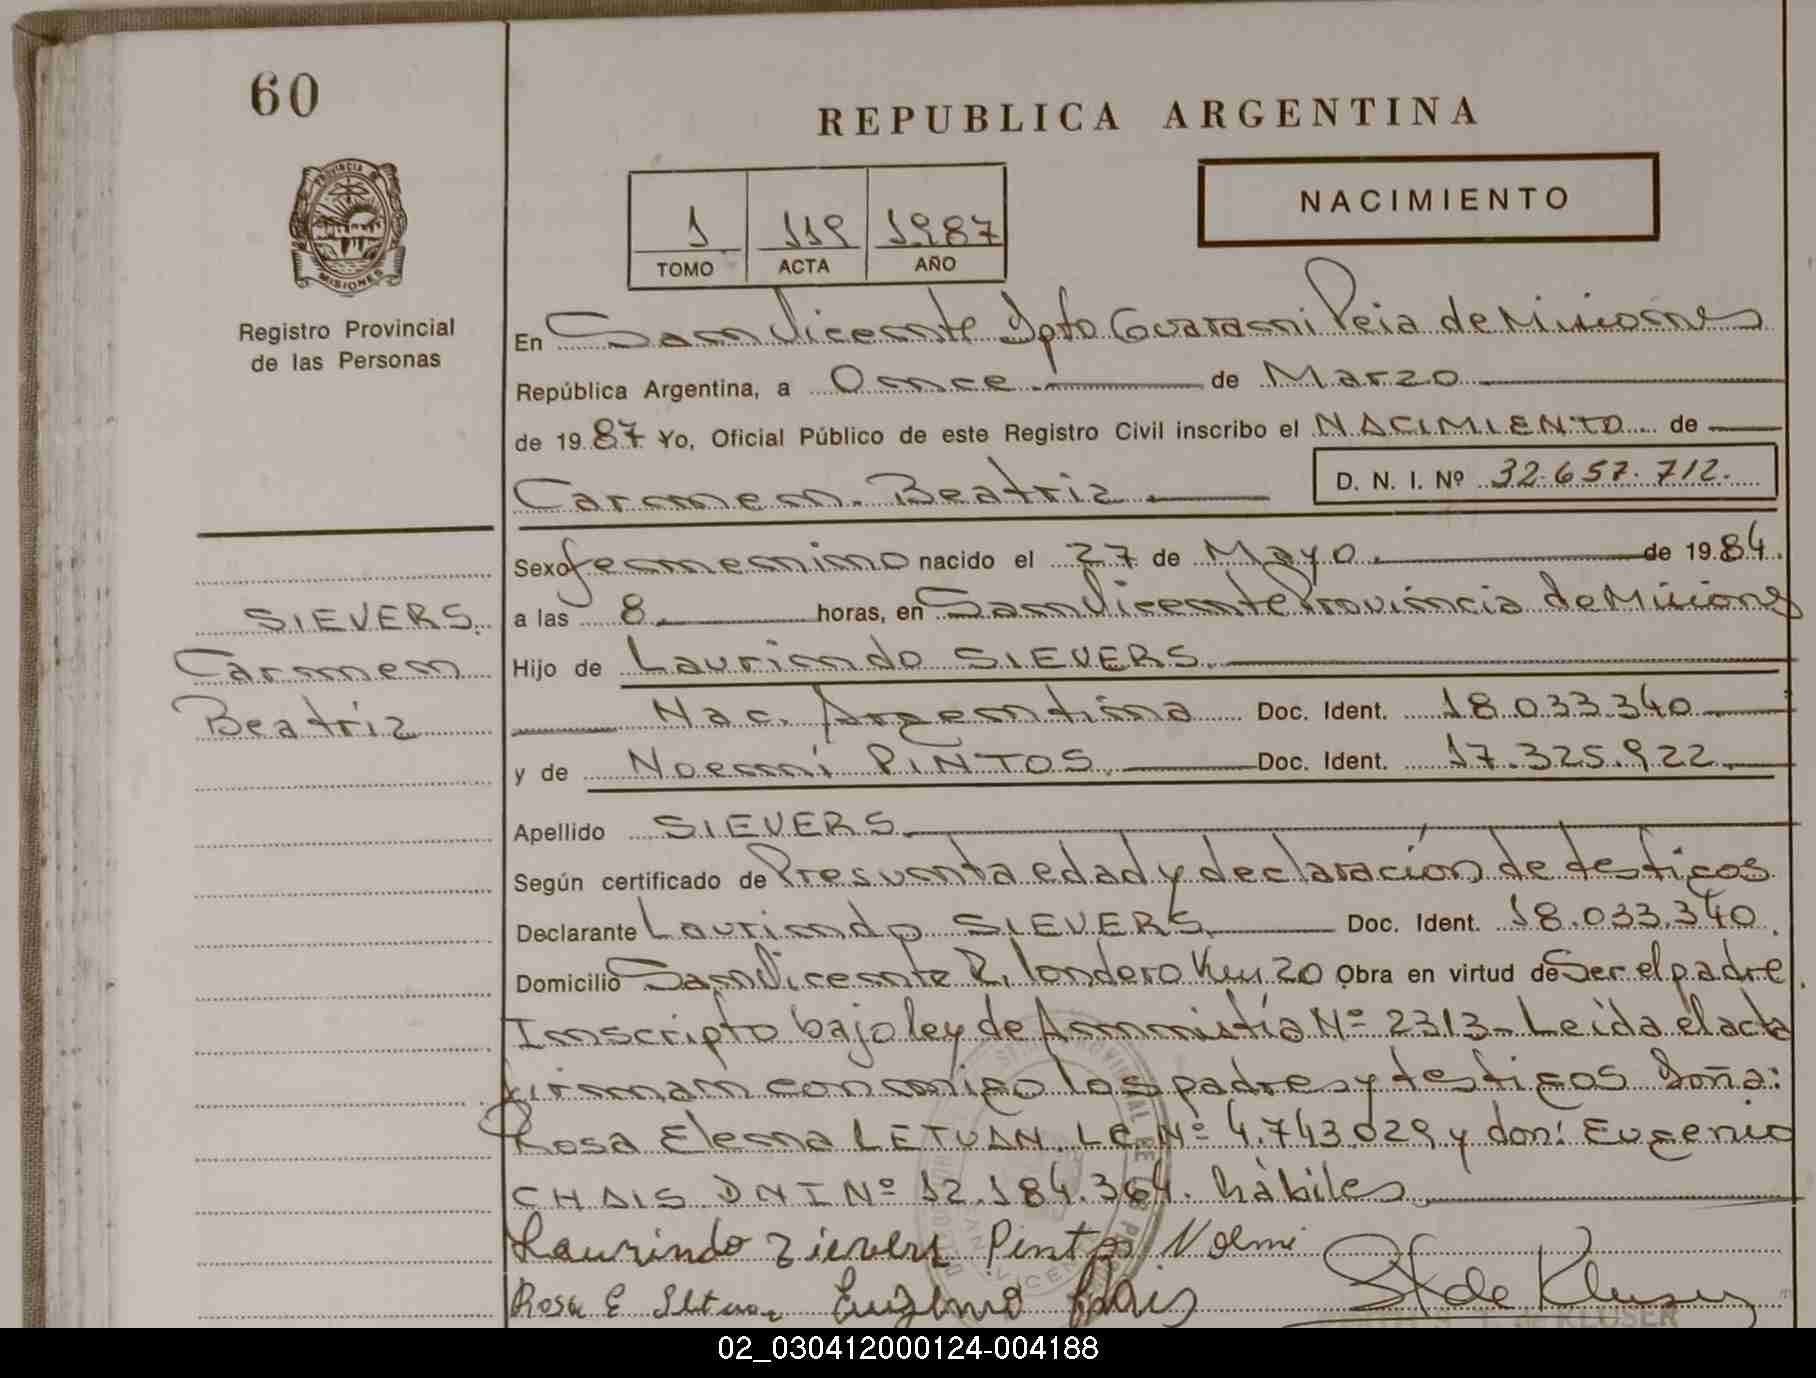 60
REPUBLICA ARGENTINA
PROVINCIA DE
MISIONES
Registro Provincial
de las Personas
1 119 1987
TOMO ACTA AÑO
NACIMIENTO
En San Vicente Dpto Guaraní Pcia de Misiones
República Argentina, a Once de Marzo
de 19 87 Yo, Oficial Público de este Registro Civil inscribo el NACIMIENTO de
Carmen Beatriz D. N. I. Nº 32.657.712.
Sexo femenino nacido el 27 de Mayo de 19 84.
a las 8 horas, en San Vicente Provincia de Misiones
Hijo de Laurindo SIEVERS
Nac. Argentina Doc. Ident. 18.033.340
y de Noemí PINTOS Doc. Ident. 17.325.922
Apellido SIEVERS
Según certificado de Presunta edad y declaración de testigos
Declarante Laurindo SIEVERS Doc. Ident. 18.033.340.
Domicilio San Vicente R. londero Km 20 Obra en virtud de Ser el padre.
Inscripto bajo ley de Ammistía Nº 2313- Leída el acta
firman conmigo los padres y testigos Doña:
Rosa Elena LETUAN LC Nº 4.743.029 y don: Eugenio
CHAIS DNI Nº 12.184.364. hábiles
Laurindo Zievers Pintos Noemi
Rosa E Eugenio Chais St de Kluser
SIEVERS.
Carmen
Beatriz
de KLUSER
02_030412000124-004188